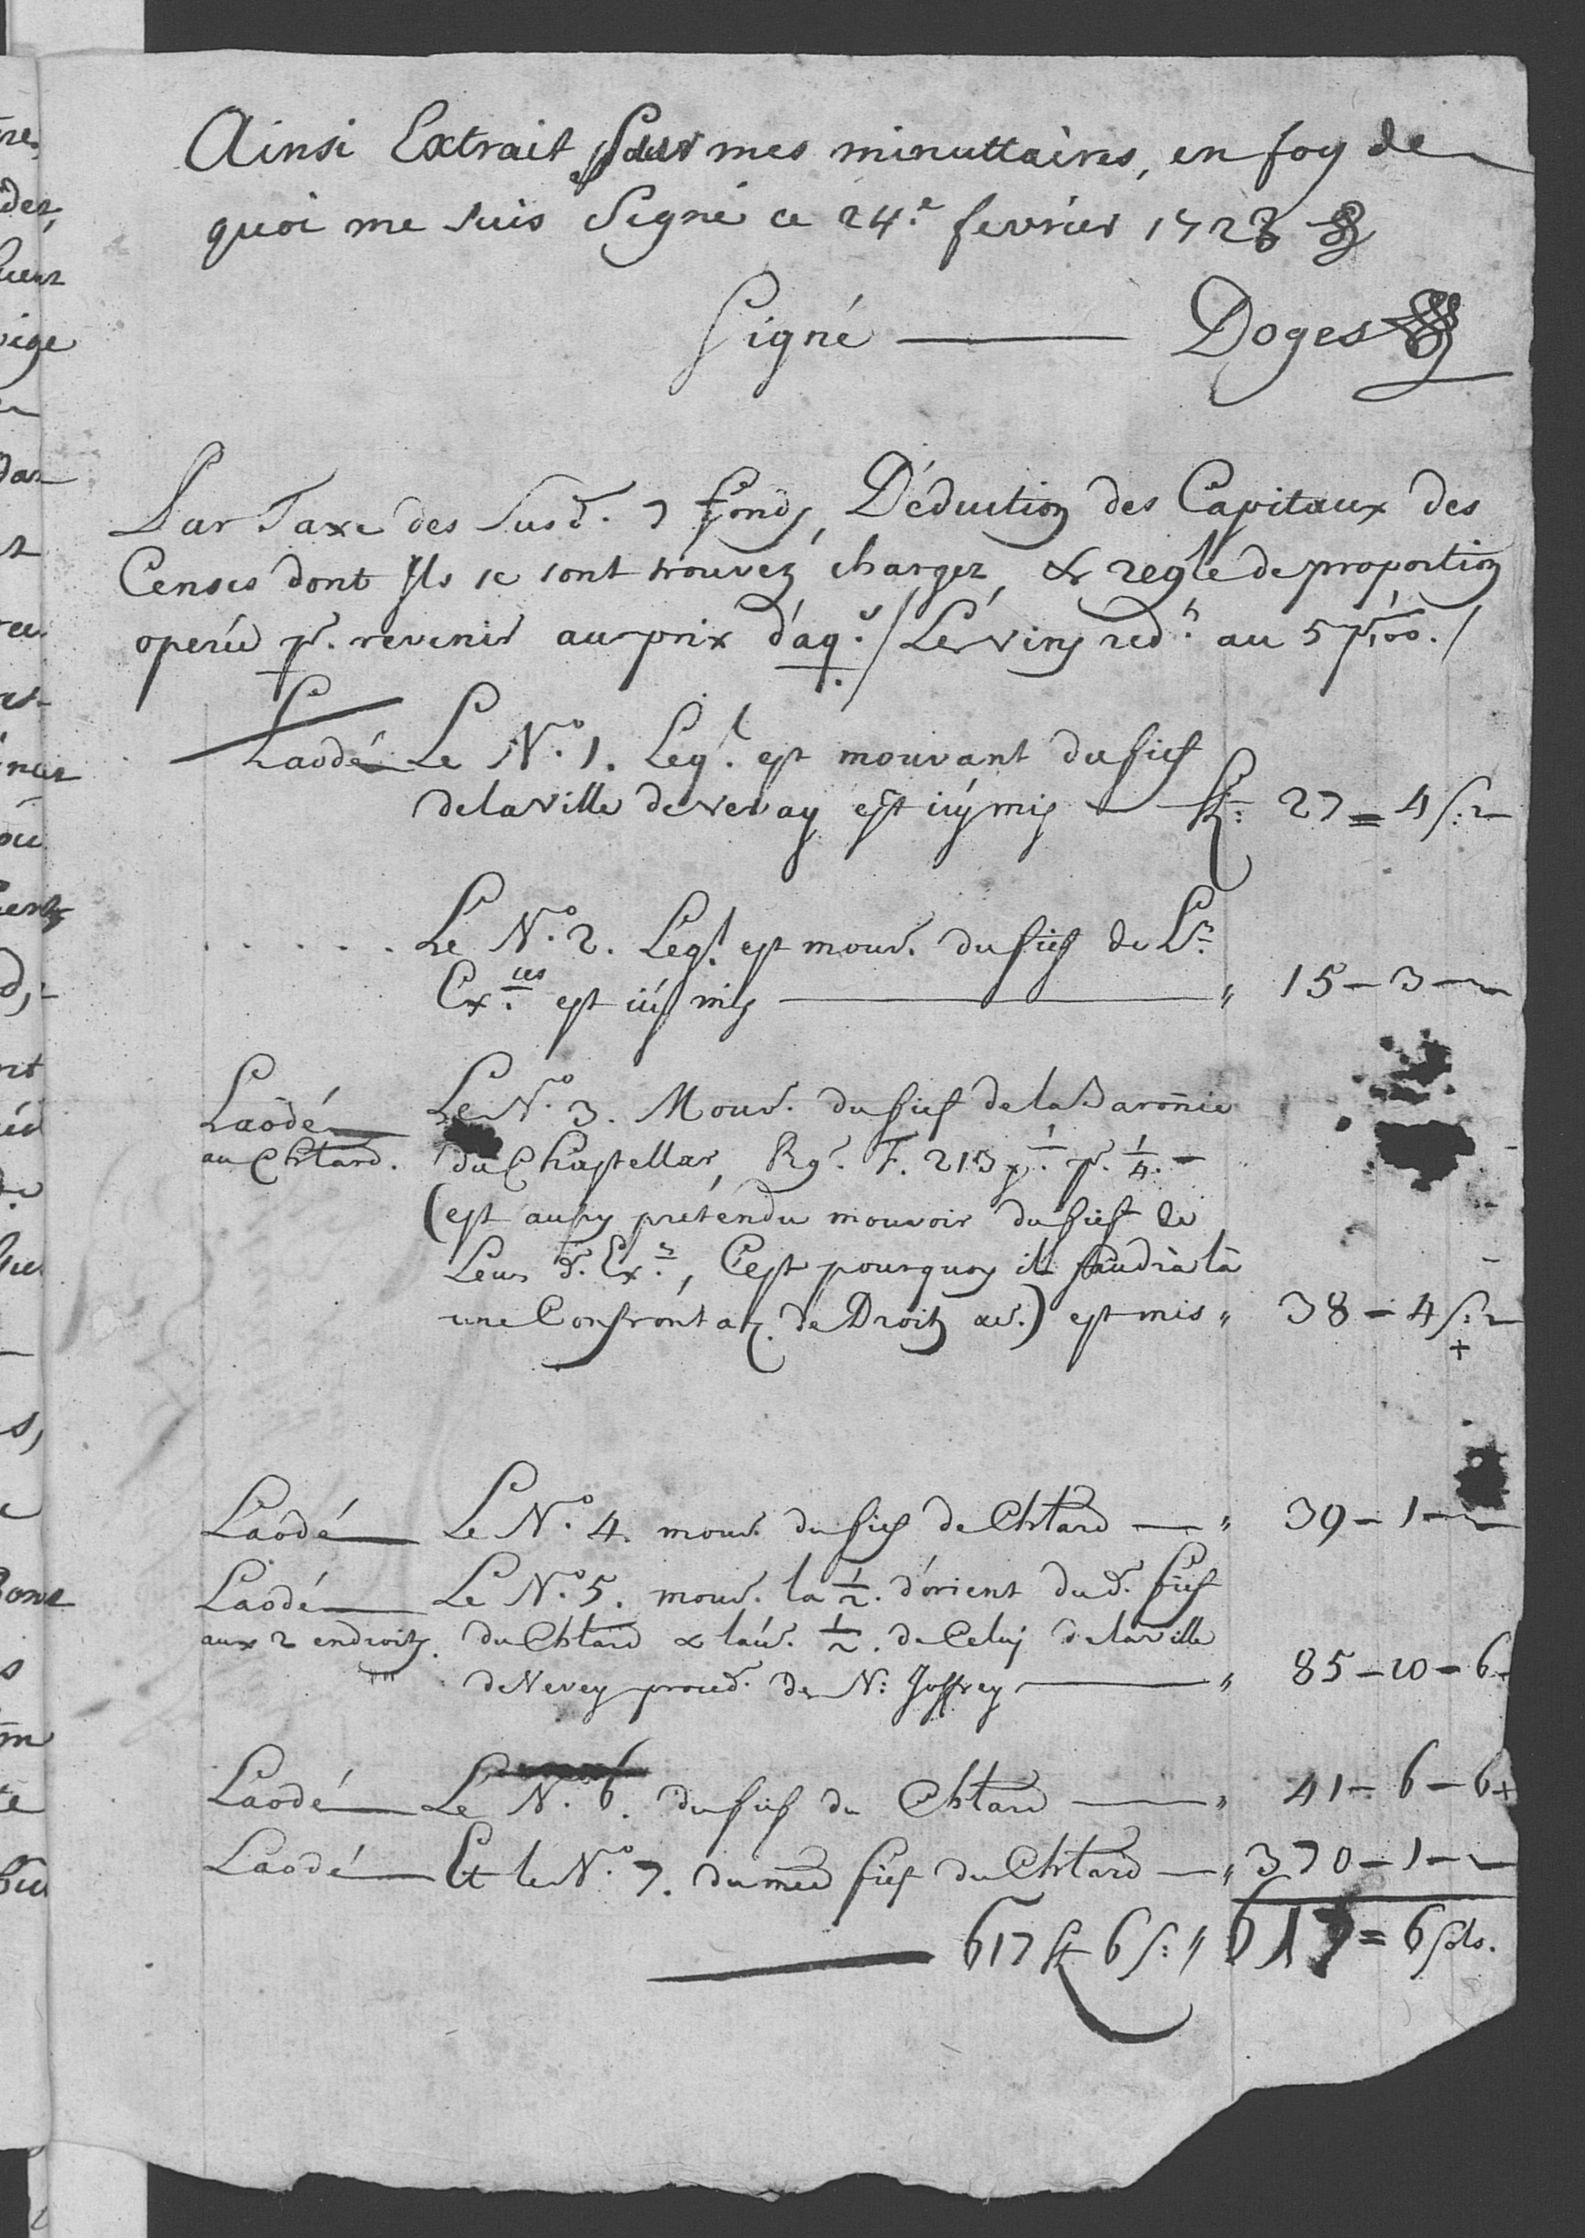 Ainsi Extrait sur mes minuttaires, en foy de
quoi me suis Signé ce 24.e fevrier 1723
Signé — Doges
Par Taxe des Susd. 7 fonds, Déduction des Capitaux des
Censes dont Ils se sont trouvez chargez, & regle de proportion
operée pr. revenir au prix d'aq.s / Les vins red.ts au 5 pr 100. /
Laodé Le N.o 1. Leq.l est mouvant du fief
de la Ville de Vevay est icy mis — ff: 27 = 4 s: 2
Le N.o 2. Leq.l est mouv. du fief de L.rs
Ex.ces est icy mis — " 15 – 3 –
Laodé Le N.o 3. Mouv. du fief de la Baronie
au Chtard. du Chastellar, Rg.r F. 213 pr. 1/4. –
(est aussy prétendu mouvoir du fief de
Leurs d. Ex.s, C'est pourquoy il faudra là
une Confrontaõn. de Droits av.) est mis " 38 – 4 s: 2
+
Laodé Le N.o 4. mouv. du fief de Chtard — " 39 – 1 –
Laodé Le N.o 5. mouv. la 1/2. d'orient du d. fief
aux 2 endroits. du Chtard & l'au. 1/2. de Celuy de la Ville
de Vevey proced. de N: Joffrey — " 85 – 10 – 6
Laodé Le N. 6. du fief du Chtard — " 41 – 6 – 6 +
Laodé Et le N.o 7. du mẽe fief du Chtard — " 370 – 1 –
617 ff 6 s: " 617 = 6 sols.